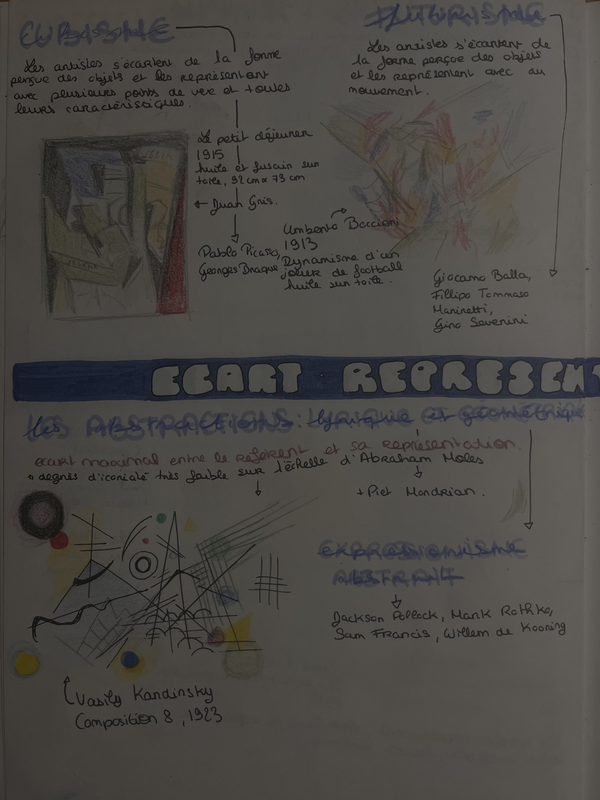 CUBISME
Les artistes s'écartent de la forme
perçue des objets et les représentent
avec plusieurs points de vue et toutes
leurs caractéristiques.
Le petit déjeuner
1915
huile et fusain sur
toile, 92 cm x 73 cm
← Juan Gris.
Pablo Picasso,
Georges Braque
FUTURISME
Les artistes s'écartent de
la forme perçue des objets
et les représentent avec du
mouvement.
Umberto Boccioni
1913
Dynamisme d'un
joueur de football
huile sur toile.
Giacomo Balla,
Fillipo Tommaso
Marinetti,
Gino Severini
ECART REPRESENT
les ABSTRACTIONS : lyrique et géométrique
écart maximal entre le référent et sa représentation.
degrés d'iconicité très faible sur l'échelle d'Abraham Moles
+ Piet Mondrian.
expressionnisme
ABSTRAIT
Jackson Pollock, Mark Rothko,
Sam Francis, Willem de Kooning
Vasily Kandinsky
Composition 8, 1923